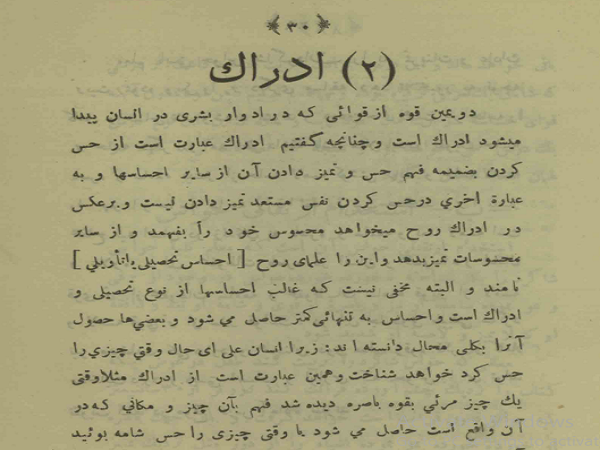 ﴿ ٣٠ ﴾
(٢) ادراك
دویمین قوه از قوائی که در ادوار بشری در انسان پیدا
میشود ادراك است و چنانچه گفتیم ادراك عبارت است از حس
کردن بضمیمه فهم حس و تمیز دادن آن از سایر احساسها و به
عبارة اخري درحس کردن نفس مستعد تمیز دادن نیست و برعکس
در ادراك روح میخواهد محسوس خود را بفهمد و از سایر
محسوسات تمیزبدهد واین را علمای روح [ احساس تحصیلی یاتأویلي ]
نامند و البته مخفی نیست که غالب احساسها از نوع تحصیلی و
ادراك است و احساس به تنهائی کمتر حاصل می شود و بعضي‌ها حصول
آنرا بکلی محال دانسته اند : زیرا انسان علی ای حال وقتي چیزي را
حس کرد خواهد شناخت و همین عبارت است از ادراك مثلاوقتی
یك چیز مرئي بقوه باصره دیده شد فهم بآن چیز و مکاني که در
آن واقع است حاصل می شود یا وقتی چیزی را حس شامه بوئید